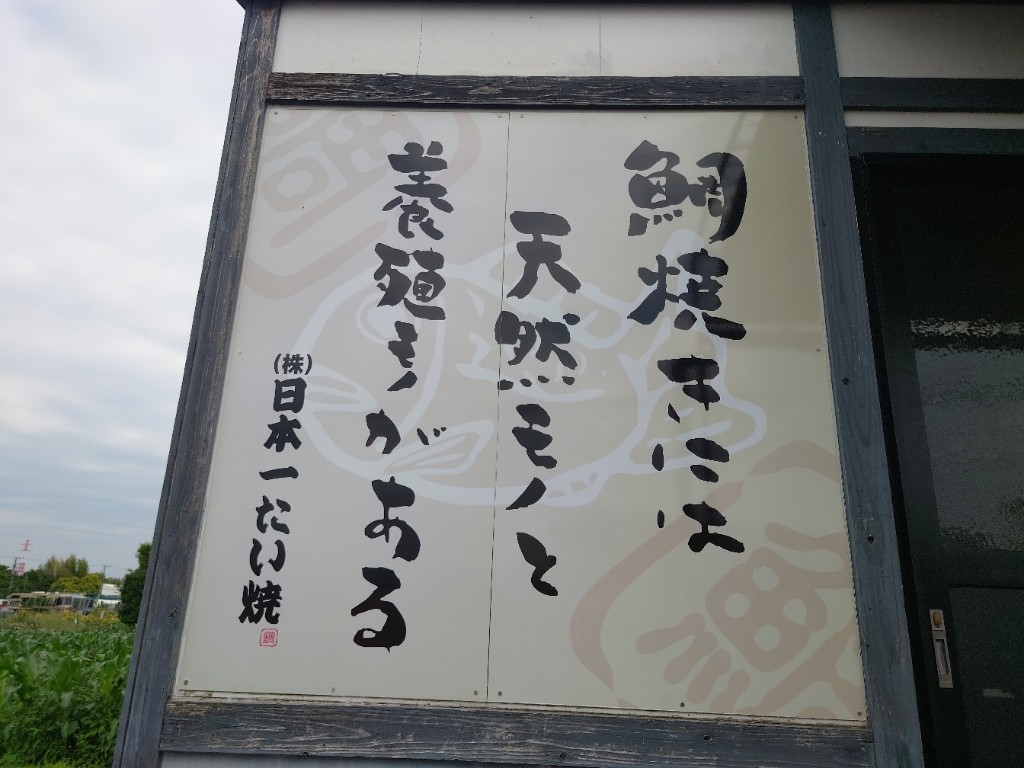 鯛焼きには
天然モノと
養殖モノがある
(株)日本一たい焼